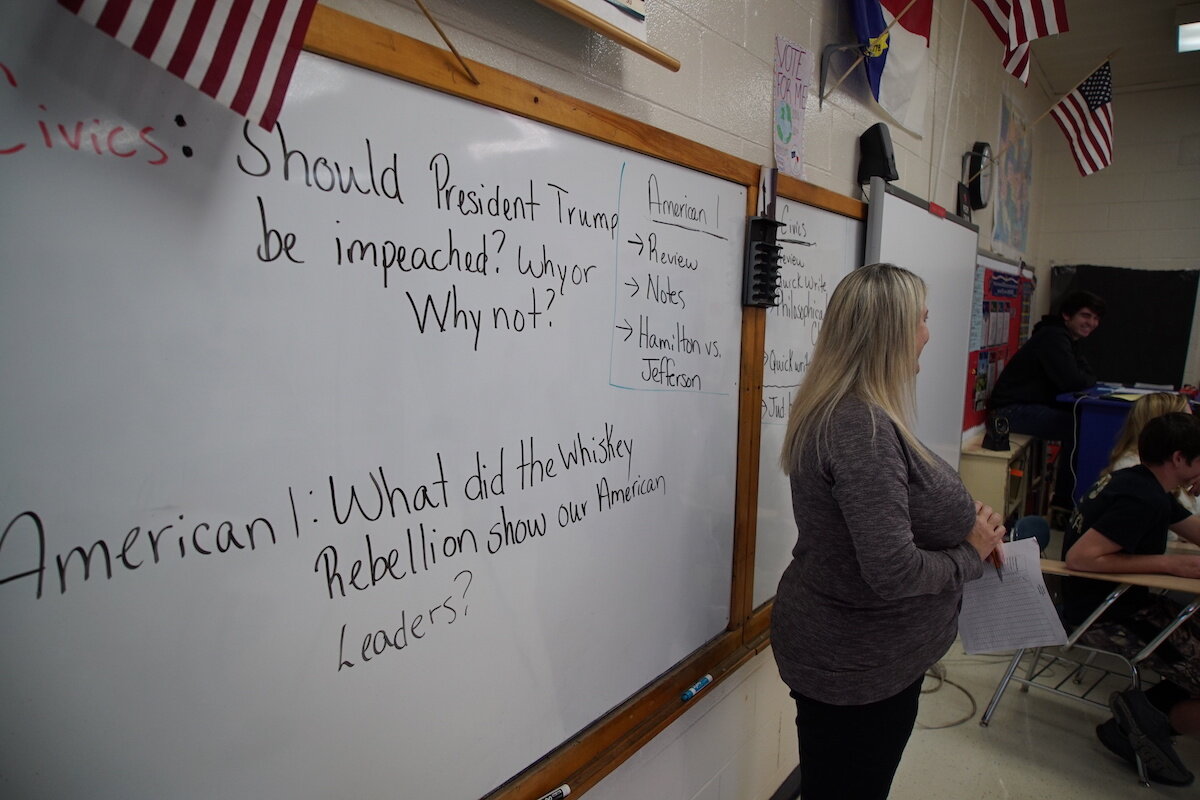 Civics: Should President Trump
be impeached? Why or
Why not?
American 1
→ Review
→ Notes
→ Hamilton vs.
Jefferson
American 1: What did the Whiskey
Rebellion show our American
Leaders?
Civics
Quick Write
Quick write
VOTE
FOR ME